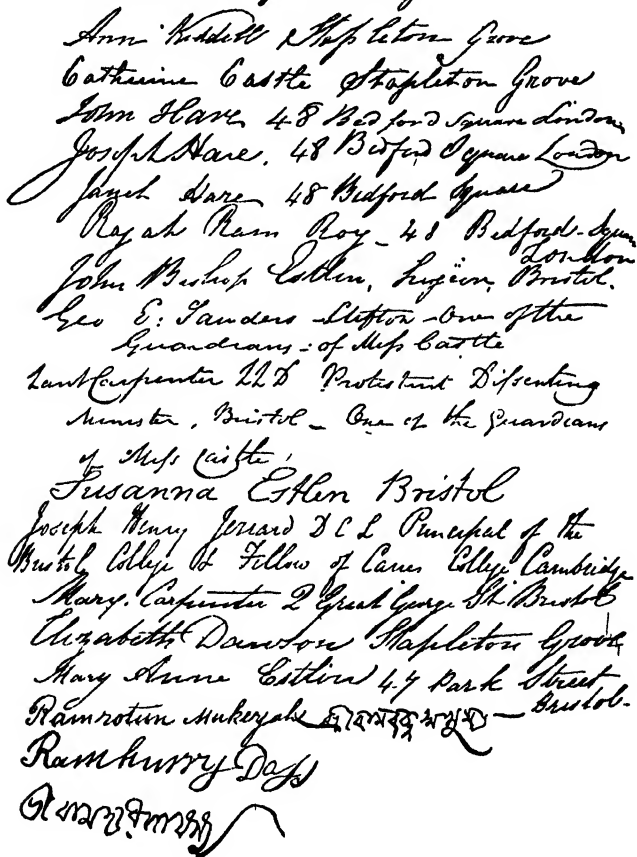 Ann Kiddell Stapleton Grove
Catherine Castle Stapleton Grove
John Hare 48 Bedford Square London
Joseph Hare. 48 Bedford Square London
Janet Hare 48 Bedford Square
Rajah Ram Roy - 48 Bedford-Square
London
John Bishop Estlin, Surgeon, Bristol.
Geo E: Sanders Clifton - One of the
Guardians - of Miss Castle
Lant Carpenter LLD Protestant Dissenting
Minister, Bristol - One of the Guardians
of Miss Castle.
Susanna Estlin Bristol
Joseph Henry Jerrard D C L Principal of the
Bristol College & Fellow of Caius College Cambridge
Mary Carpenter 2 Great George St. Bristol
Elizabeth Dawson Stapleton Grove
Mary Anne Estlin 47 Park Street
Bristol.
Ramrotun Mukerjah
Ramhurry Dass